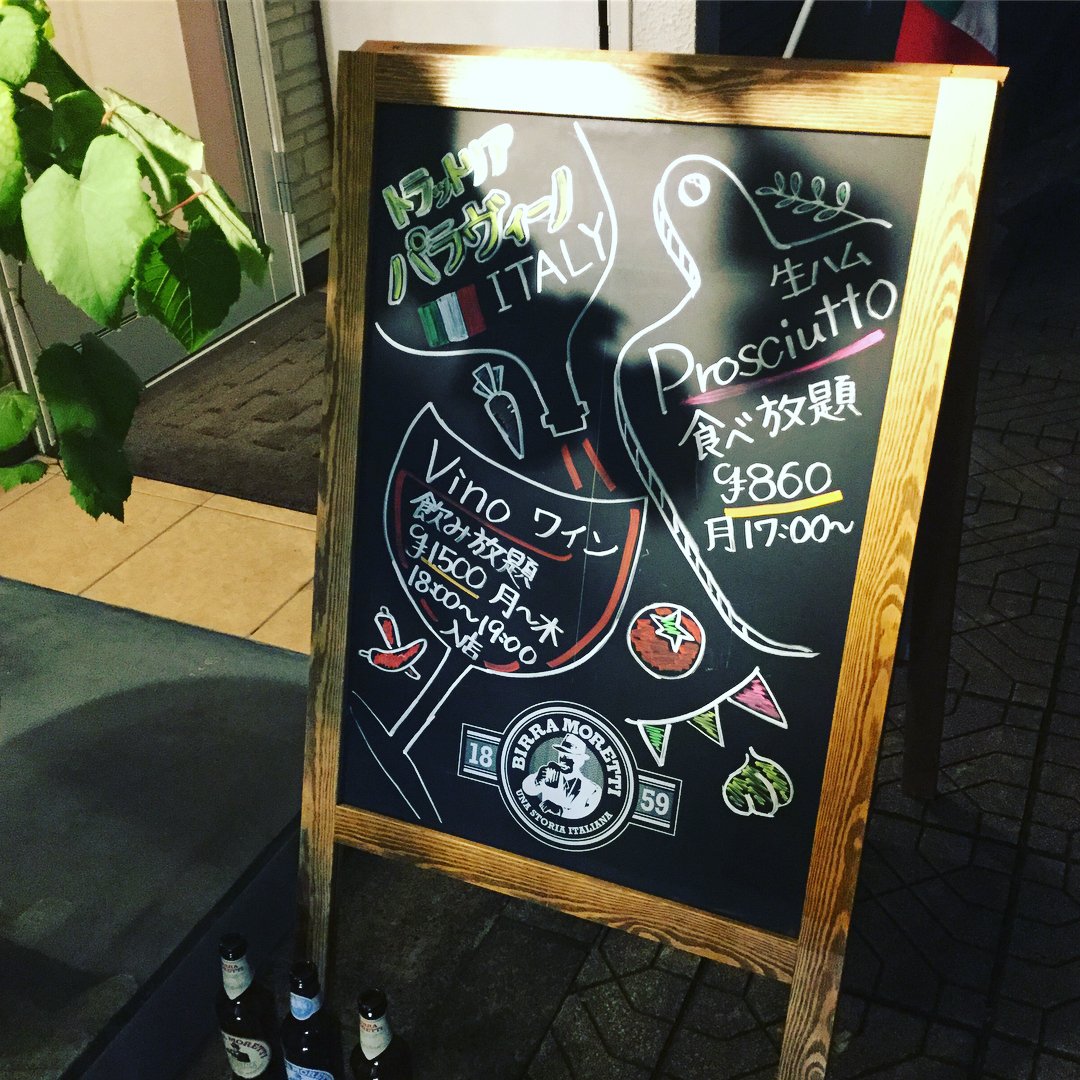 トラットリア
パラヴィーノ
ITALY
生ハム
Prosciutto
食べ放題
¥860
月17:00〜
Vino ワイン
飲み放題
¥1500 月〜木
18:00〜19:00
入店
BIRRA MORETTI
18 59
UNA STORIA ITALIANA
BIRRA MORETTI